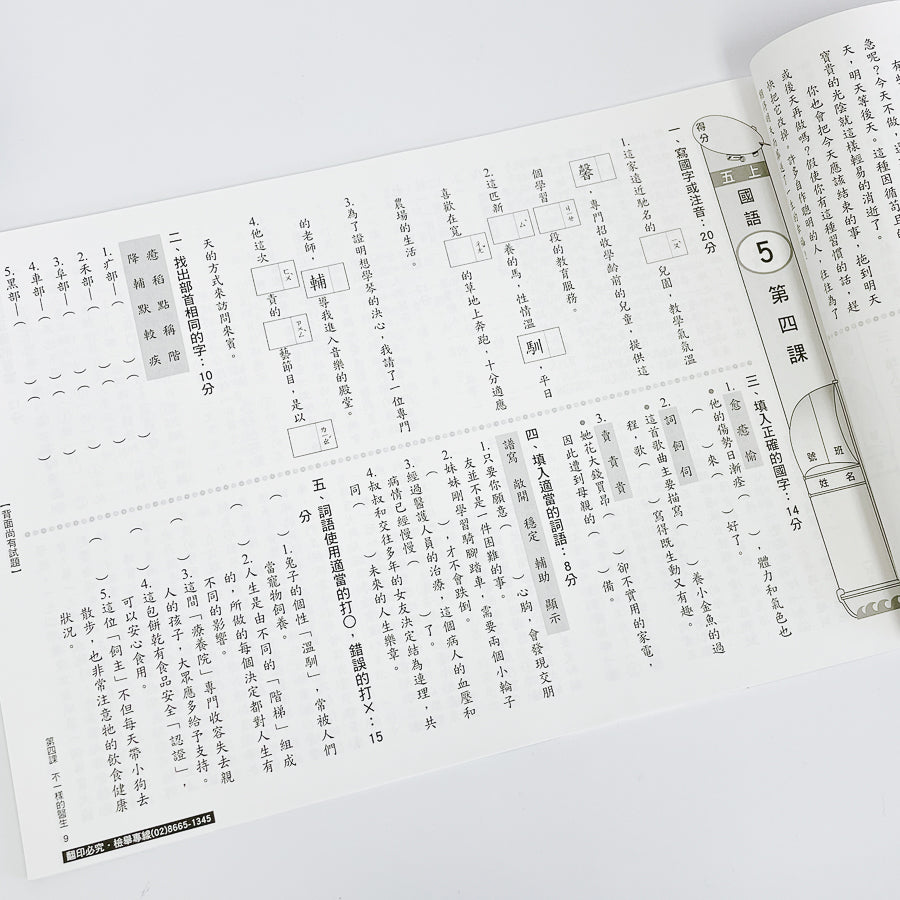 得分
五上
國語
5
第四課
班
號
姓名
一、寫國字或注音：20分
1.這家遠近馳名的
兒園，教學氣氛溫
馨，專門招收學齡前的兒童，提供這
個學習
ㄐㄧㄝ
段的教育服務。
2.這匹新
養的馬，性情溫馴，平日
喜歡在寬
的草地上奔跑，十分適應
農場的生活。
3.為了證明想學琴的決心，我請了一位專門
的老師，輔導我進入音樂的殿堂。
4.他這次
貴的
藝節目，是以
天的方式來訪問來賓。
二、找出部首相同的字：10分
癒 稻 點 稱 階
降 輔 默 較 疾
1.疒部─（　）（　）
2.禾部─（　）（　）
3.阜部─（　）（　）
4.車部─（　）（　）
5.黑部─（　）（　）
三、填入正確的國字：14分
1.愈 癒 愉
他的傷勢日漸痊（　），體力和氣色也
（　）來（　）好了。
2.詞 飼 伺
這首歌曲主要描寫（　）養小金魚的過
程，歌（　）寫得既生動又有趣。
3.
她花大錢買昂（　）卻不實用的家電，
因此遭到母親的（　）備。
四、填入適當的詞語：8分
譜寫 敞開 穩定 輔助 顯示
1.只要你願意（　）心胸，會發現交朋
友並不是一件困難的事。
2.妹妹剛學習騎腳踏車，需要兩個小輪子
（　），才不會跌倒。
3.經過醫護人員的治療，這個病人的血壓和
病情已經慢慢（　）了。
4.叔叔和交往多年的女友決定結為連理，共
同（　）未來的人生樂章。
五、詞語使用適當的打○，錯誤的打×：15
分
（　）1.兔子的個性「溫馴」，常被人們
當寵物飼養。
（　）2.人生是由不同的「階梯」組成
的，所做的每個決定都對人生有
不同的影響。
（　）3.這間「療養院」專門收容失去親
人的孩子，大眾應多給予支持。
（　）4.這包餅乾有食品安全「認證」，
可以安心食用。
（　）5.這位「飼主」不但每天帶小狗去
散步，也非常注意牠的飲食健康
狀況。
【背面尚有試題】
第四課 不一樣的醫生 9
翻印必究・檢舉專線(02)8665-1345
急呢？今天不做，
天，明天等後天。這種因循苟且的
寶貴的光陰就這樣輕易的消逝了。
你也會把今天應該結束的事，拖到明天
或後天再做嗎？假使你有這種習慣的話，趕
快把它改掉，許多自作聰明的人，往往為了